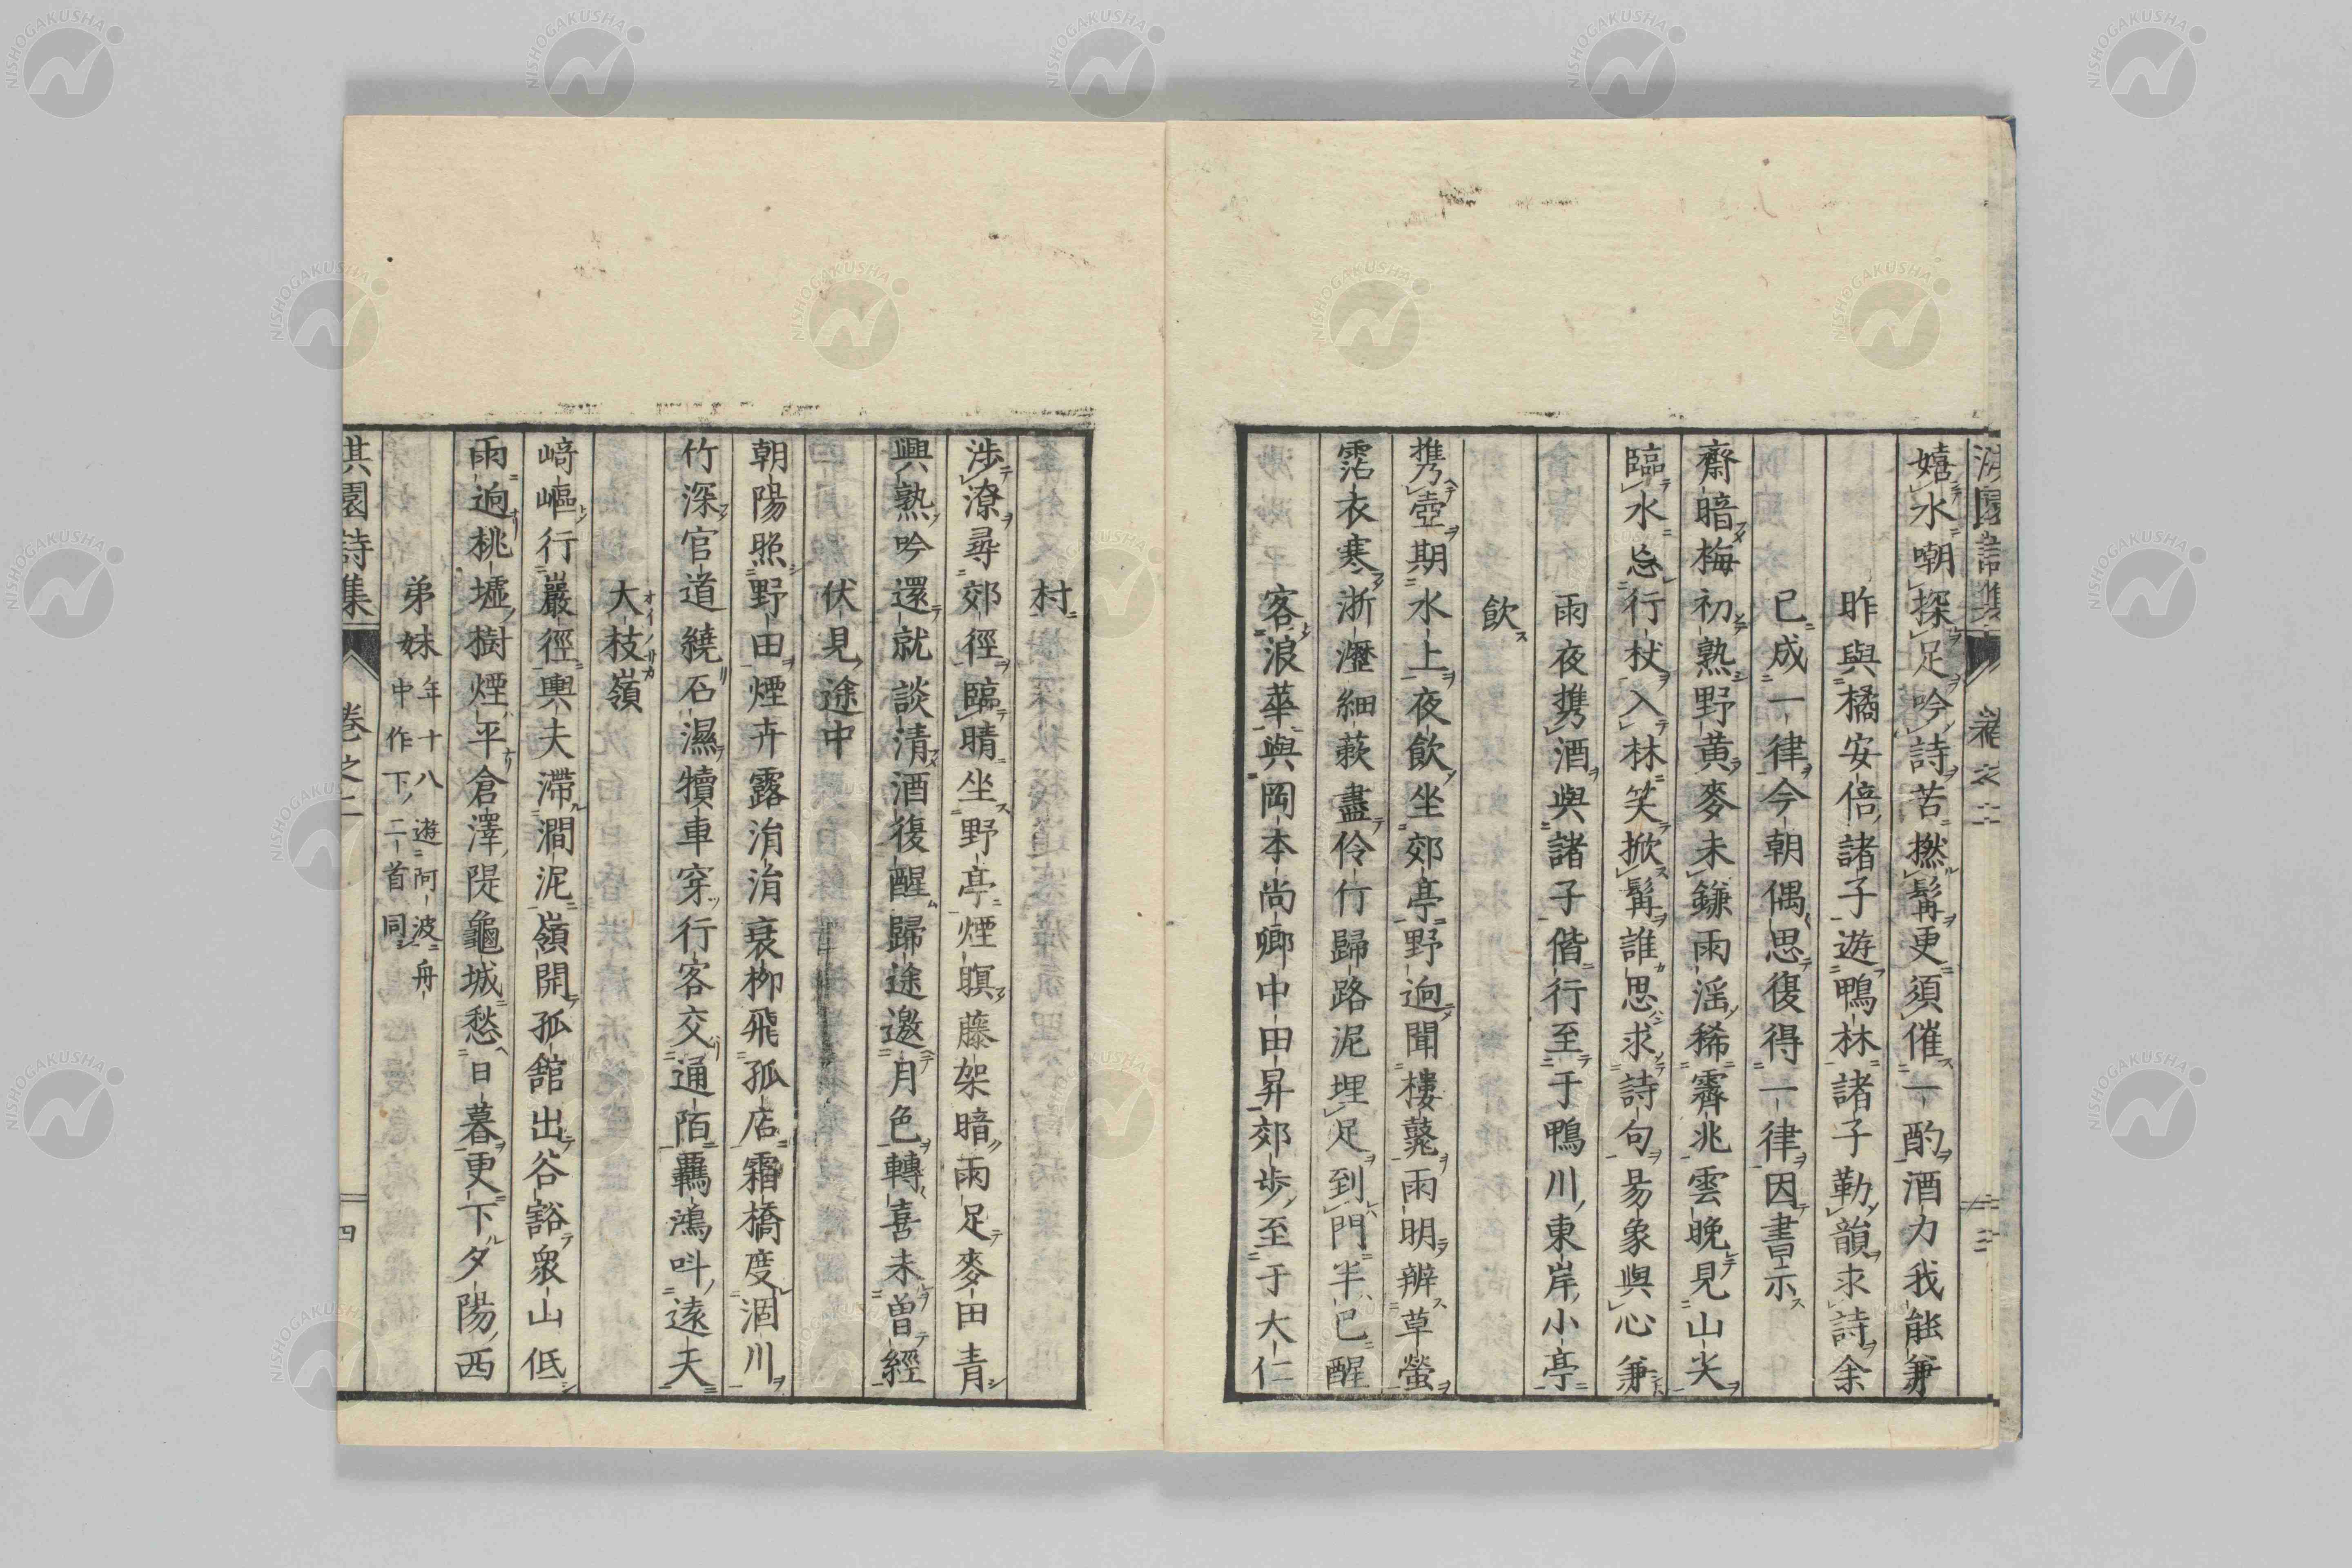 嬉水嘲探足吟詩苦撚髯更須催一酌酒力我能兼
昨與橘安倍諸子遊鴨林諸子勒韻求詩余
已成一律今朝偶思復得一律因書示
齋暗梅初熟野黄麥未鎌雨淫稀霽兆雲晩見山尖
臨水忘行杖入林笑掀髯誰思求詩句易象與心兼
雨夜携酒與諸子偕行至于鴨川東岸小亭
飲
携壺期水上夜飲坐郊亭野逈聞樓鼕雨明辨草螢
霑衣寒浙瀝細蔌盡伶仃歸路泥埋足到門半已醒
客浪華與岡本尚卿中田昇郊歩至于大仁
村
渉潦尋郊徑臨晴坐野亭煙暝藤架暗雨足麥田青
興熟吟還就談清酒復醒歸途邀月色轉喜未曾經
伏見途中
朝陽照野田煙卉露涓涓衰柳飛孤店霜橋度涸川
竹深官道繞石濕犢車穿行客交通陌羇鴻呌遠天
大枝嶺
オイノサカ
﨑嶇行巖徑輿夫滯澗泥嶺開孤舘出谷豁衆山低
雨逈桃墟樹煙平倉澤隄龜城愁日暮更下夕陽西
弟妹
年十八遊阿波舟
中作下二首同
淇園詩集 卷之二 四
NISHOGAKUSHA